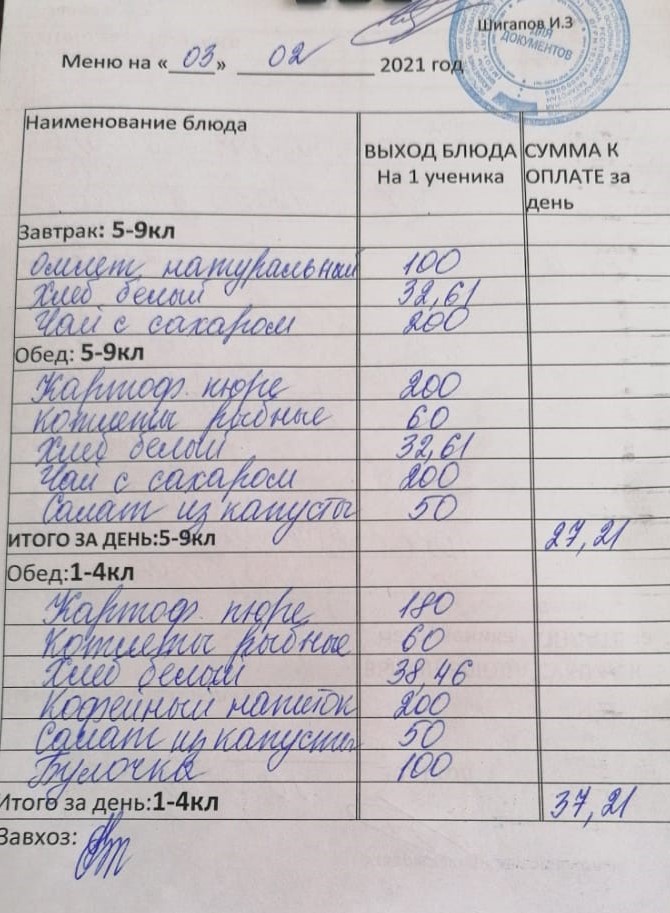 Шигапов И.З
ДЛЯ ДОКУМЕНТОВ
Меню на «03» 02 2021 год
Наименование блюда ВЫХОД БЛЮДА На 1 ученика СУММА К ОПЛАТЕ за день
Завтрак: 5-9кл
Омлет натуральный 100
Хлеб белый 32,61
Чай с сахаром 200
Обед: 5-9кл
Картоф. пюре 200
Котлеты рыбные 60
Хлеб белый 32,61
Чай с сахаром 200
Салат из капусты 50
ИТОГО ЗА ДЕНЬ:5-9кл 27,21
Обед:1-4кл
Картоф. пюре 180
Котлеты рыбные 60
Хлеб белый 38,46
Кофейный напиток 200
Салат из капусты 50
Булочка 100
Итого за день:1-4кл 37,21
Завхоз: